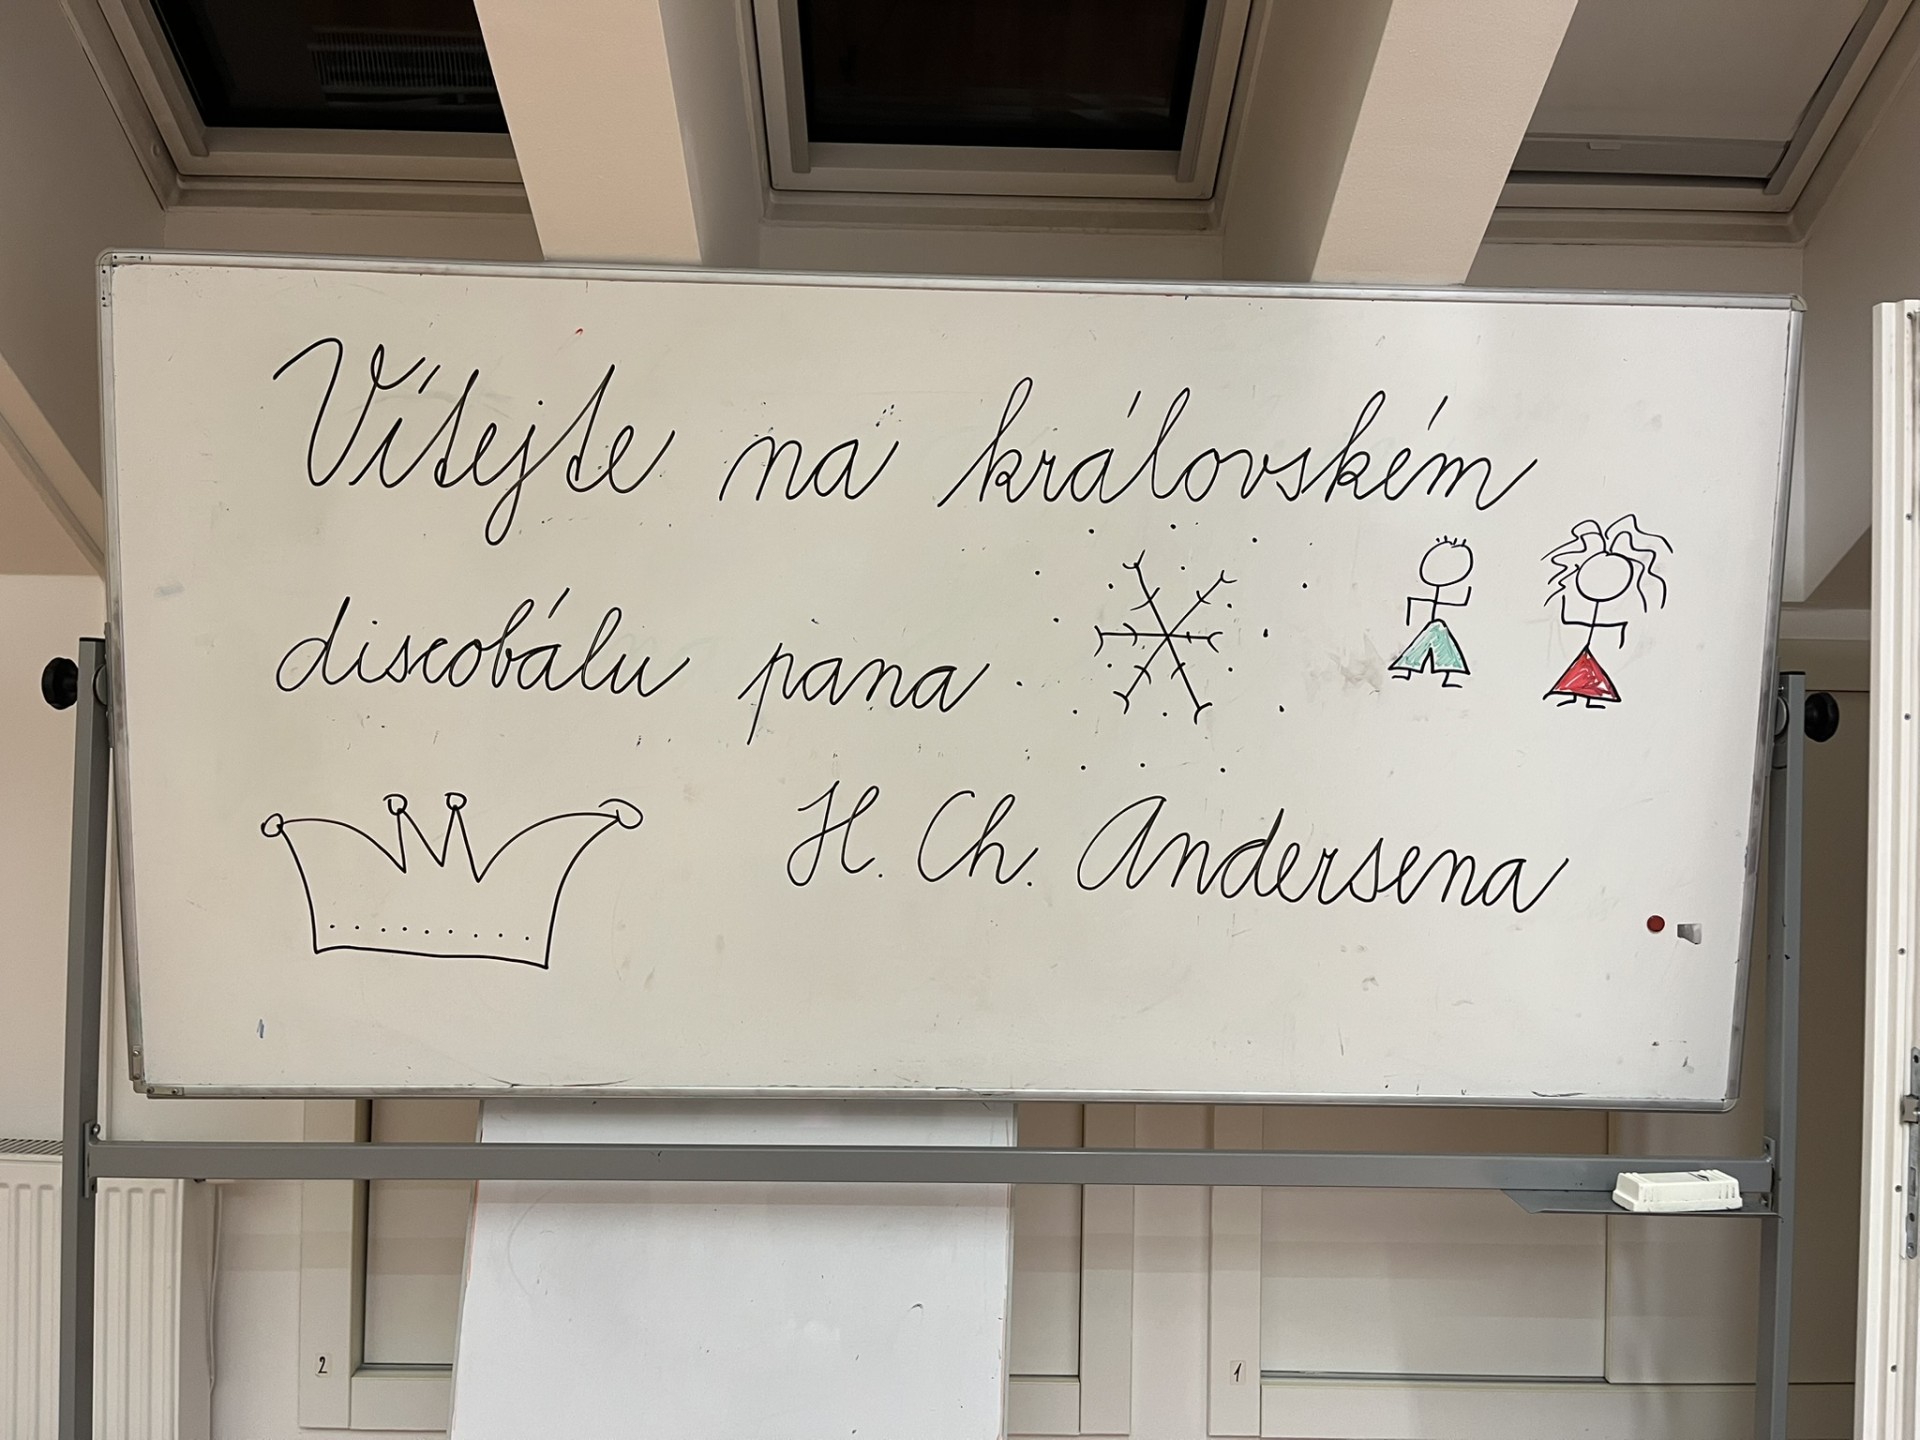 Vítejte na královském
discobálu pana
H. Ch. Andersena
2
1